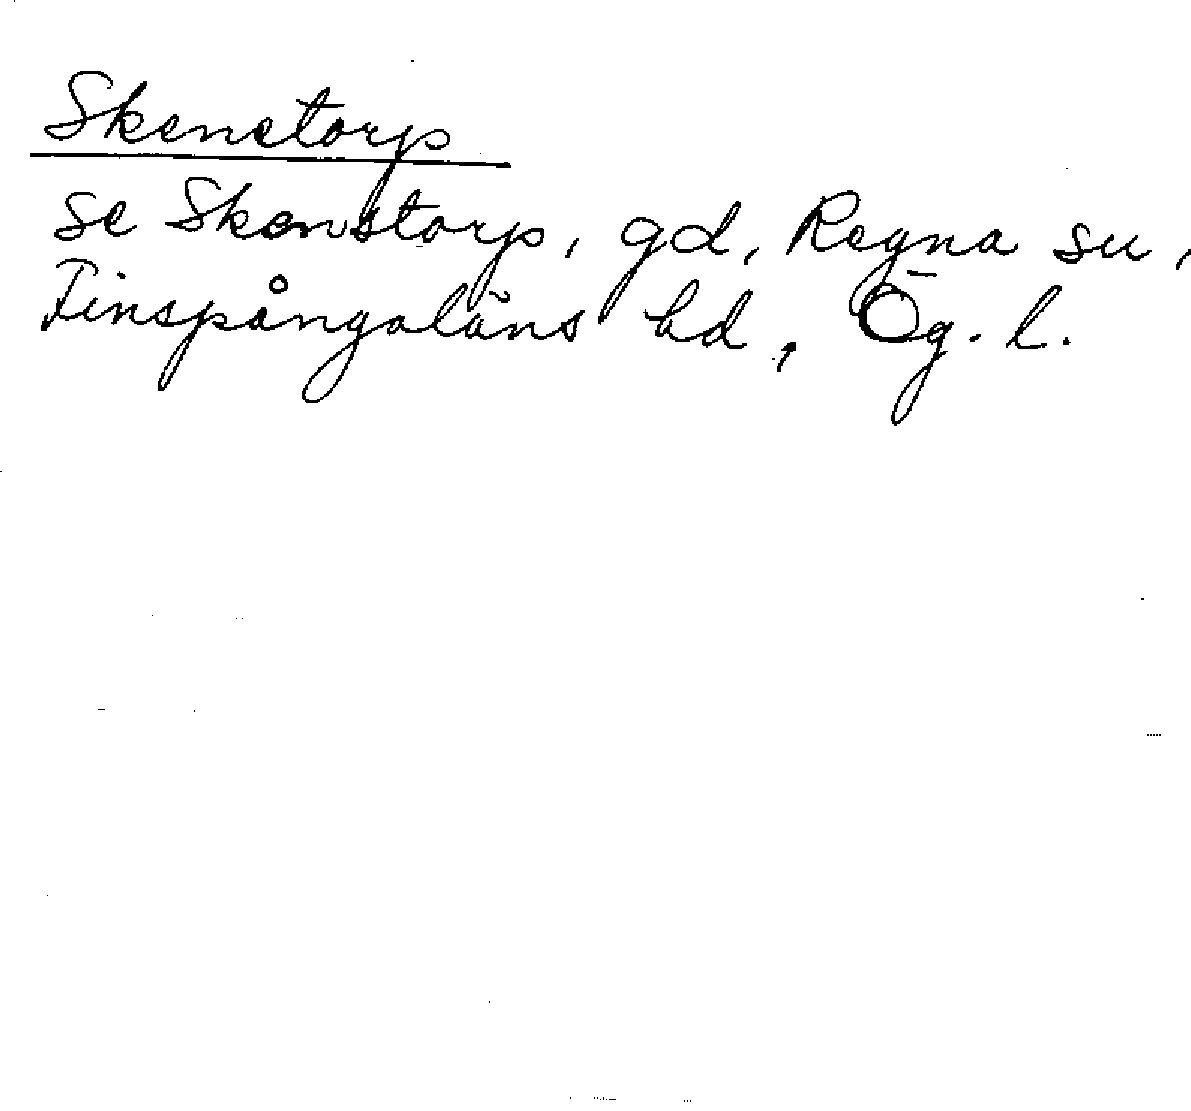 Skenetorp
se Skenstorp, gd, Regna sn,
Finspångaläns hd, Ög. l.